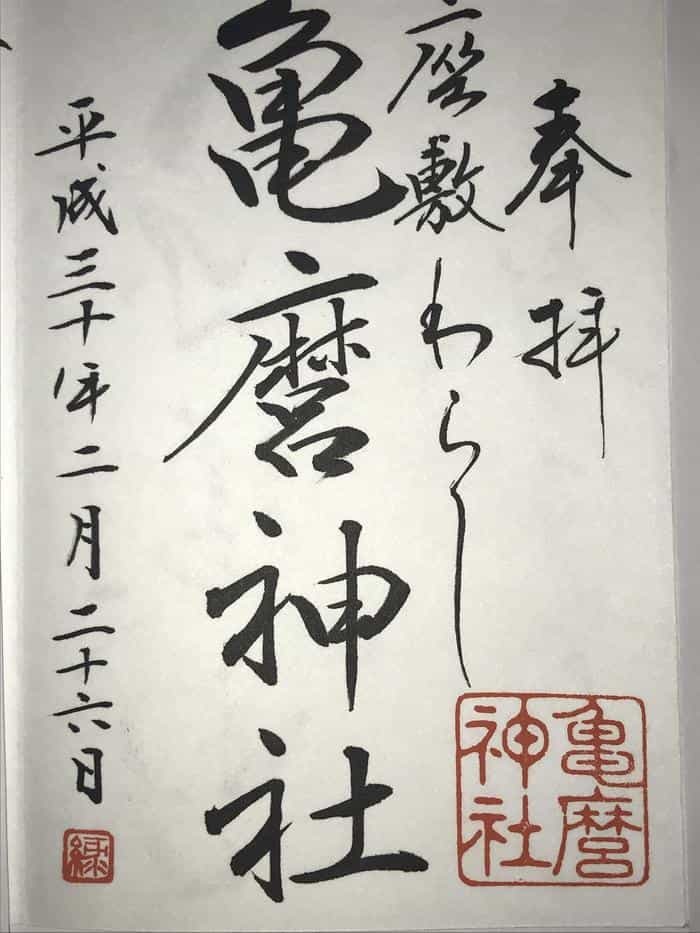 奉拝
座敷わらし
亀麿神社
平成三十年二月二十六日
亀麿
神社
緑